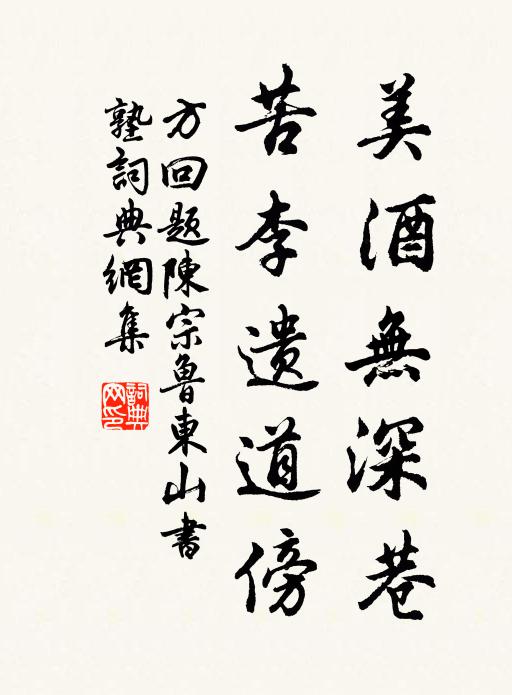 美酒無深巷
苦李遺道傍
方回题陳宗魯東山書
塾詞典網集
詞典網印